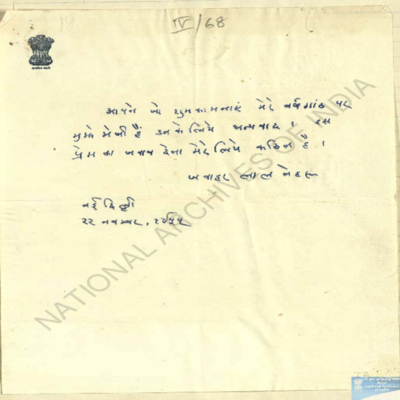 IV/68
आपने जो शुभकामनाएं मेरे वर्षगांठ पर
मुझे भेजी हैं उनके लिये धन्यवाद। इस
प्रेम का जवाब देना मेरे लिये कठिन है।
जवाहर लाल नेहरू
नई दिल्ली
२२ नवम्बर,
NATIONAL ARCHIVES OF INDIA